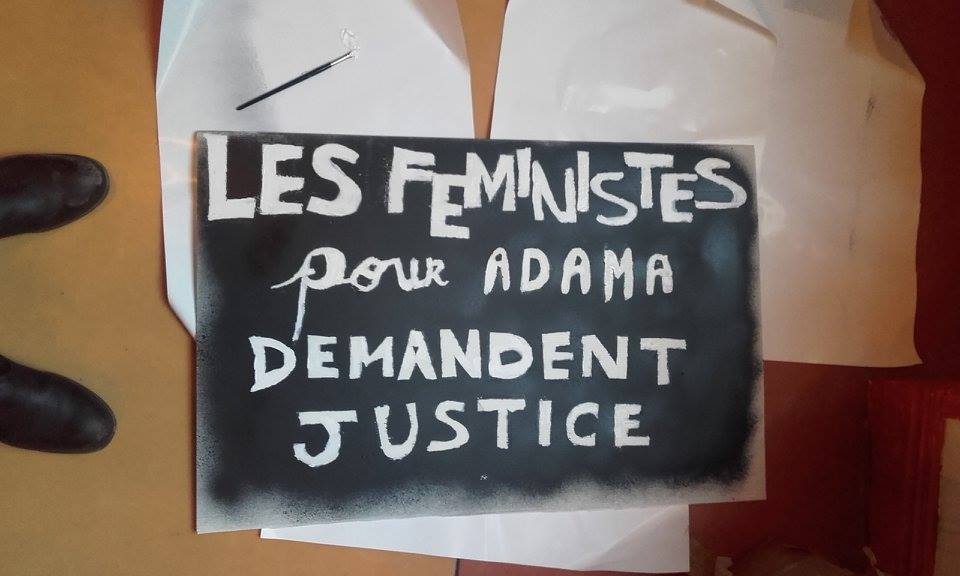 LES FEMINISTES
pour ADAMA
DEMANDENT
JUSTICE